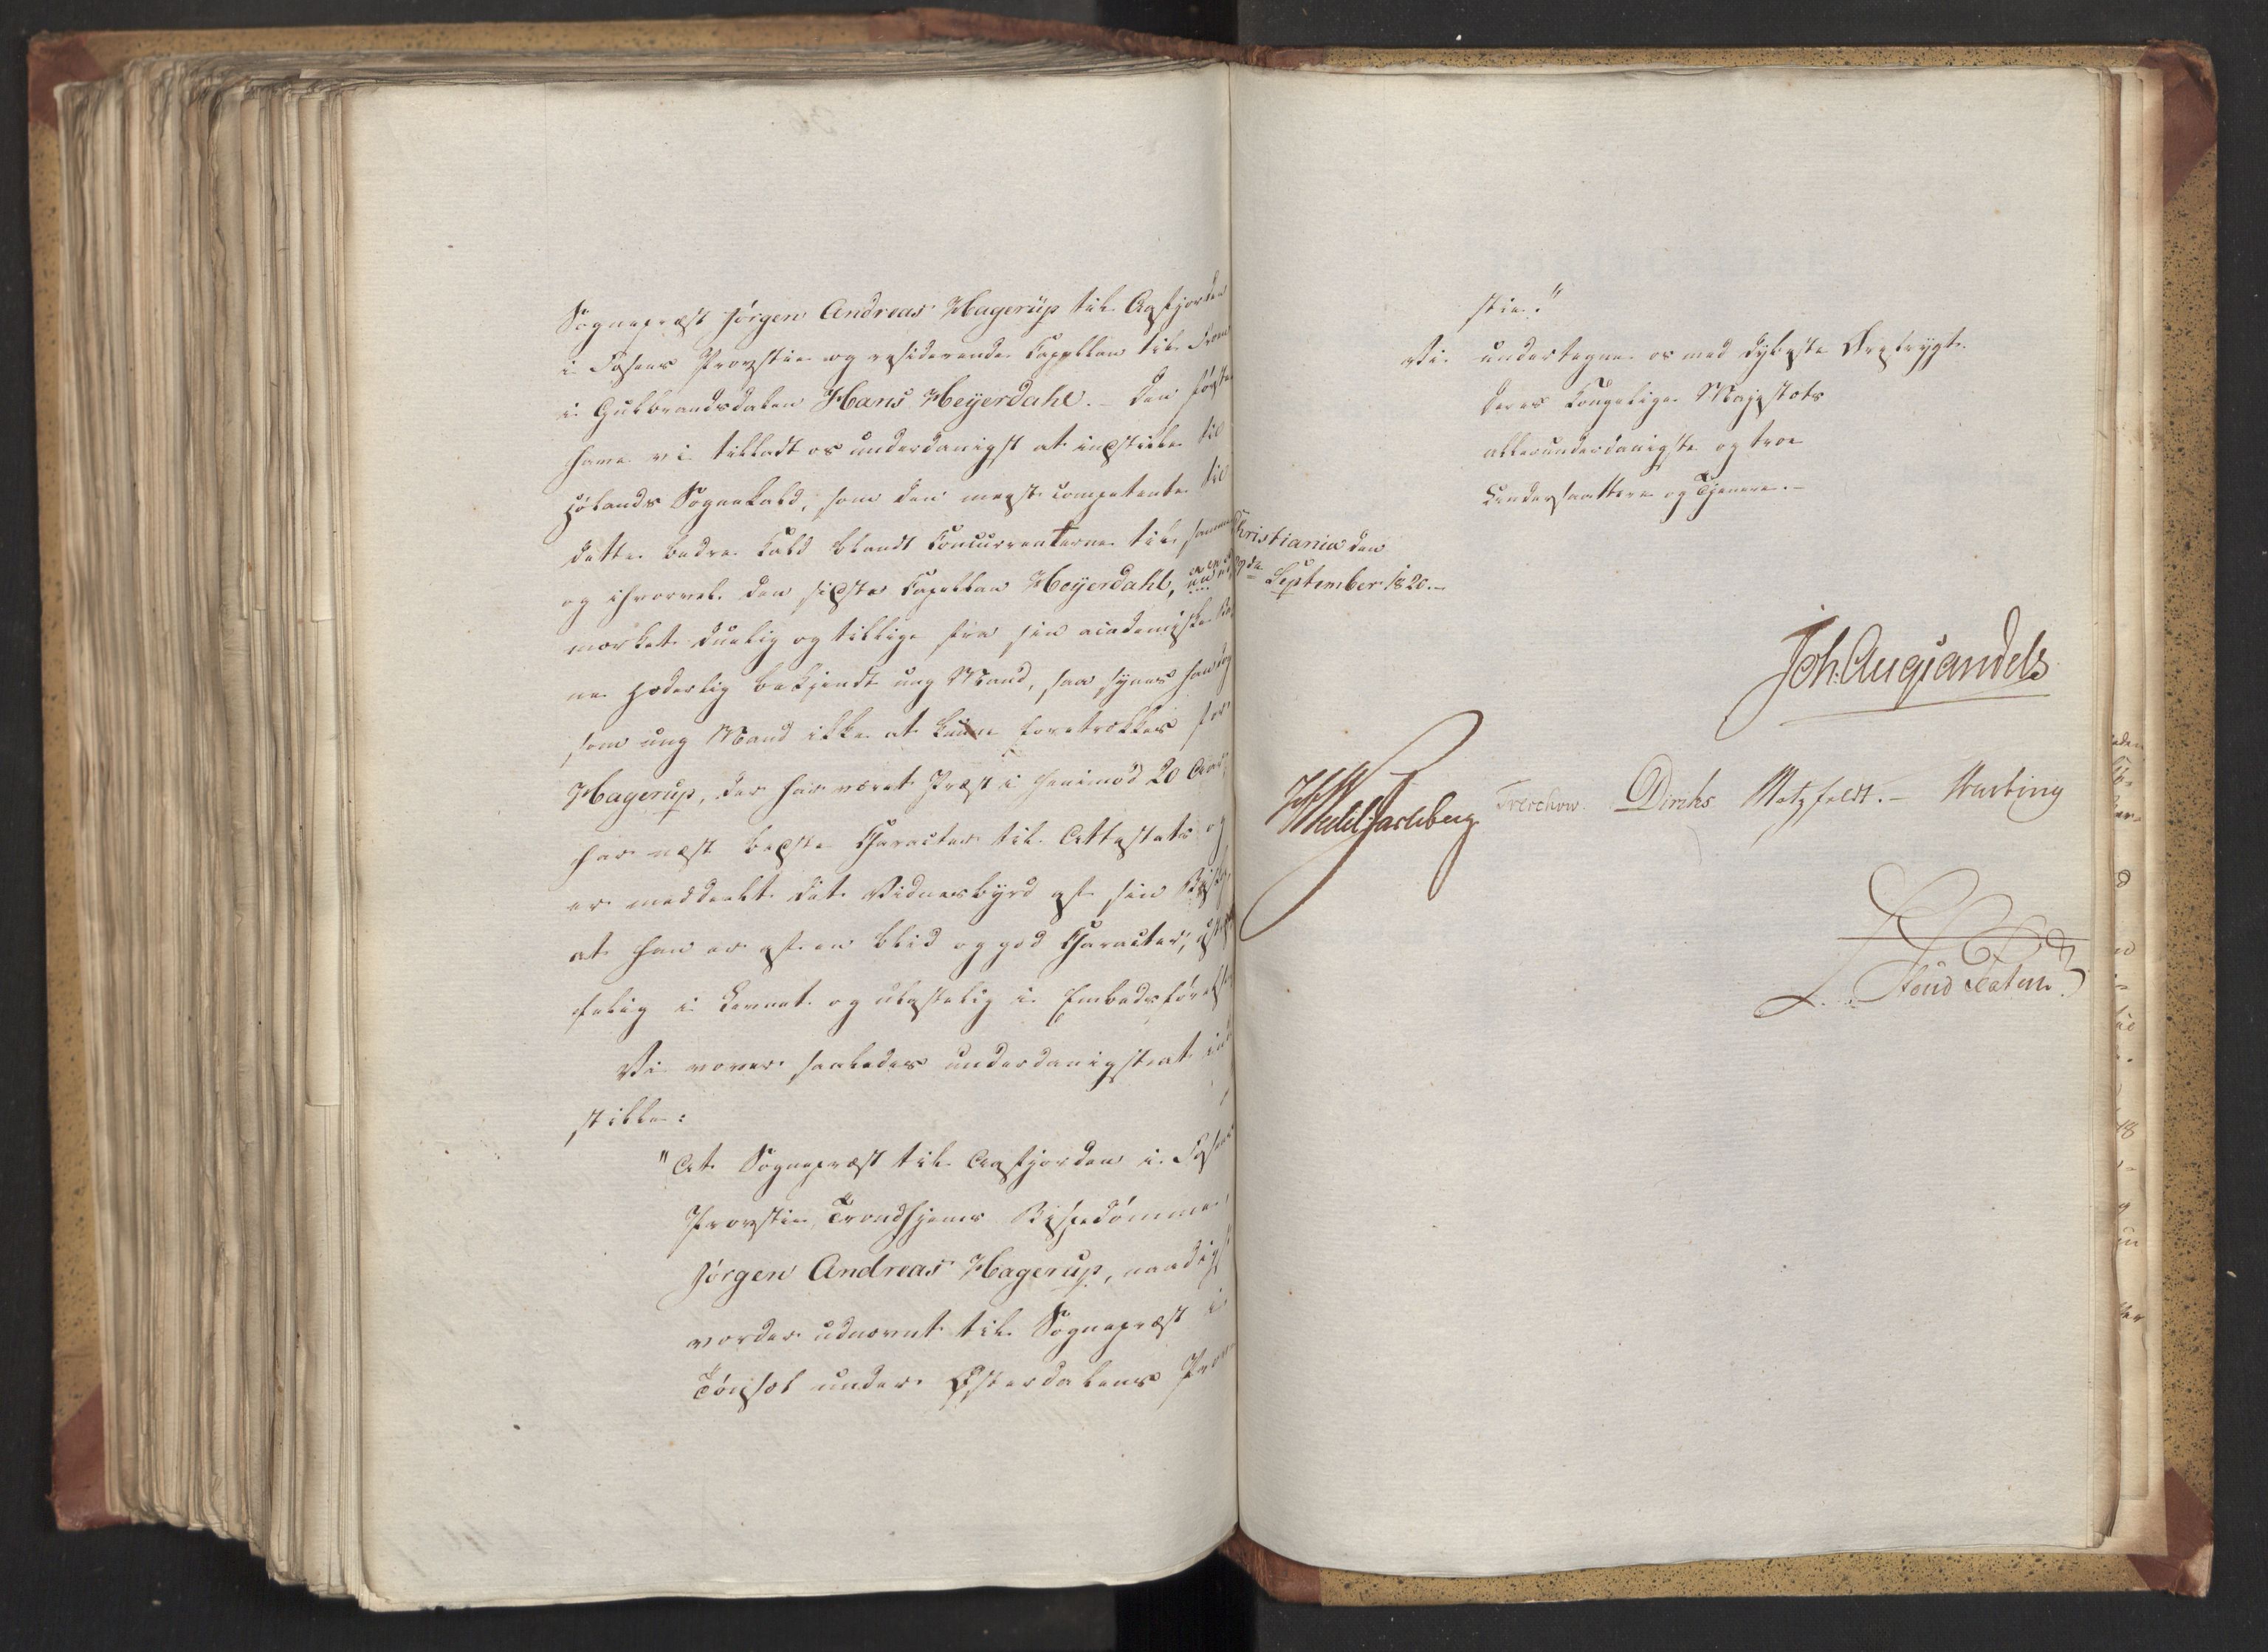 Sognepræst Jörgen Andreas Hagerup til Aafjorden
i Fosens Provstie og residerende Capellan til Fron
i Gulbrandsdalen Hans Heyerdahl. – Den første
have vi tilladt os underdanigst at indstille til
Hölands Sognekald, som den meest competente til
dette bedre Kald blandt Concurrenterne til samme
og ihvorvel den sidste Capellan Heyerdahl, er en
mærket duelig og tillige fra sin academiske
ne hæderlig bekjendt ung Mand, saa synes han dog
som ung Mand ikke at kunne foretrækkes for
Hagerup, der har været Præst i henimod 20 Aar,
har næst bedste Character til Attestats og
er meddeelt det Vidnesbyrd af sin Biskop,
at han er af en blid og god Character,
felig i Levnet og ulastelig i Embedsførelse
Vi vover saaledes underdanigst at ind
stille:
"At Sognepræst til Aafjorden i Fosens
Provstie, Trondhjems Bispedömme,
Jörgen Andreas Hagerup, naadigst
vorder udnævnt til Sognepræst i
Tönset under Østerdalens Prov
stie."
Vi undertegne os med dybeste Ærefrygt
Deres Kongelige Majestæts
allerunderdanigste og troe
Undersaattere og Tjenere. –
Christiania den
9de September 1820. –
Joh: Aug: Sandels
HWedel Jarlsberg Treschow. Diriks Motzfeldt. – Hurting